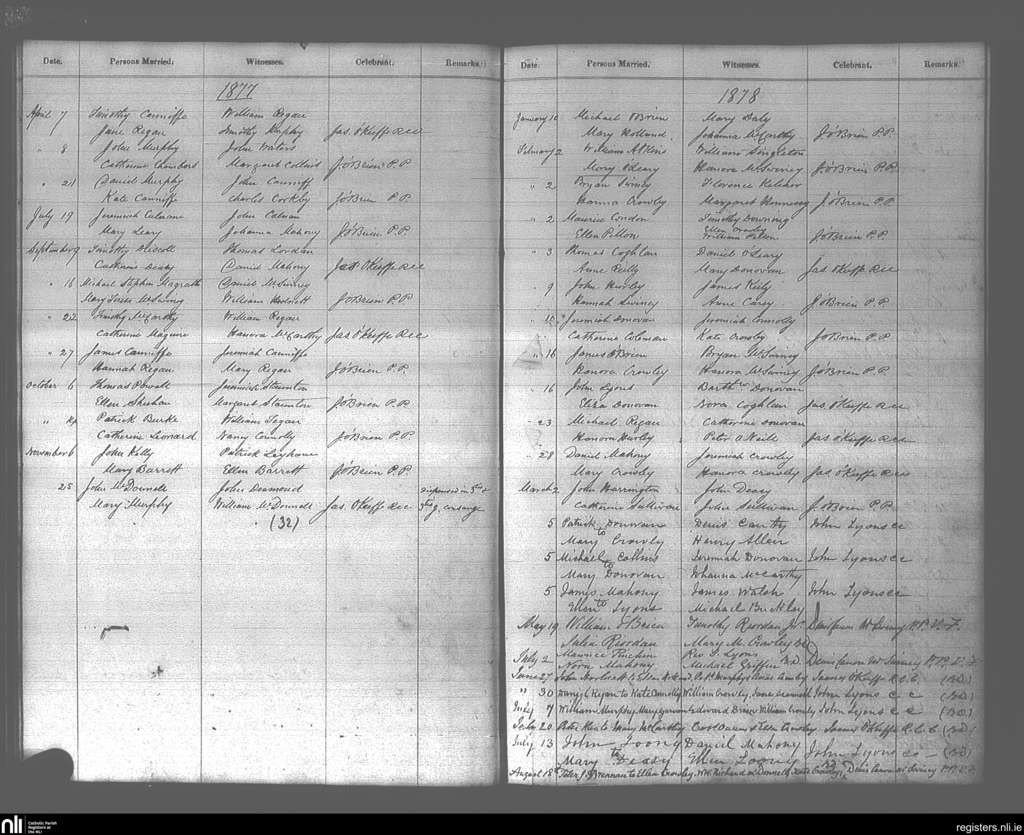 Date. Persons Married. Witnesses. Celebrant. Remarks.
1877
April 7 Timothy Cunniffe William Regan
Jane Regan Timothy Murphy Jas O'Keeffe RCC
" 8 John Murphy John Waters
Catherine Margaret Collins J O'Brien P.P.
" 24 Daniel Murphy John Cunniff
Kate Cunniffe Charles Corkby J O'Brien P.P.
July 19 Jeremiah Colnane John Colnan
Mary Leary Johanna Mahony J O'Brien P.P.
September 9 Timothy Driscoll Thomas Lordan
Catherine Deasy Daniel Mahony Jas O'Keeffe RCC
" 16 Michael Stephen Magrath Daniel McSwiney
Mary Teresa McSwiney William J O'Brien P.P.
" 22 Timothy McCarthy William Regan
Catherine Maguire Hanora McCarthy Jas O'Keeffe RCC
" 27 James Cunniffe Jeremiah Cunniffe
Hannah Regan Mary Regan J O'Brien P.P.
October 6 Thomas Powell Jeremiah Staunton
Ellen Sheehan Margaret Staunton J O'Brien P.P.
" Patrick Burke William
Catherine Leonard Nancy Connolly J O'Brien P.P.
November 6 John Kelly Patrick Leyhane
Mary Barrett Ellen Barrett J O'Brien P.P.
25 John McDonnell John Desmond dispensed in 3rd &
Mary Murphy William McDonnell Jas. O'Keeffe RCC consang
(32)
Date. Persons Married. Witnesses. Celebrant. Remarks.
1878
January 10 Michael O'Brien Mary Daly
Mary Holland Johanna McCarthy J O'Brien P.P.
February 2 William Atkins William Singleton
Mary O'Leary Hanora McSwiney J O'Brien P.P.
" 2 Bryan Swiney Florence Kelcher
Hanna Crowly Margaret Hennessy J O'Brien P.P.
" 2 Maurice Condon Timothy Downing
Ellen J O'Brien P.P.
" 3 Thomas Coghlan Daniel O'Leary
Anne Reilly Mary Donovan Jas O'Keeffe RCC
" 9 John Hurley James Kiely
Hannah Swiney Anne Carey J O'Brien P.P.
" 10 Jeremiah Donovan Jeremiah Connolly
Catherine Coleman Kate Crowly J O'Brien P.P.
" 16 James O'Brien Bryan McSwiney
Hanora Crowley Hanora McSwiney J O'Brien P.P.
16 John Lyons Barthw Donovan
Eliza Donovan Nora Coghlan Jas O'Keeffe RCC
" 23 Michael Regan Catherine Donovan
Hanora Hurley Peter O'Neill Jas O'Keeffe RCC
" 28 Daniel Mahony Jeremiah Crowley
Mary Crowley Hanora Crowley Jas O'Keeffe RCC
March 2 John Harrington John Deasy
Catherine Sullivan John Sullivan J O'Brien P.P.
5 Patrick Donovan Denis Canty John Lyons cc
to
Mary Crowley Henry Allen
5 Michael Collins Jeremiah Donovan John Lyons cc
to
Mary Donovan Johanna McCarthy
5 James Mahony James Walsh John Lyons cc
to
Ellen Lyons Michael Buckley
May 19 William O'Brien Timothy Riordan Jr Denis Canon McSwiney P.P. V.F.
Julia Riordan Mary M. Crowley
July 2 Maurice Rev J. Lyons
Nora Mahony Michael Griffin Denis Canon McSwiney P.P. V.F.
June 27 John to Ellen Patk Murphy James O'Keeffe R.C.C. (BD)
" 30 Regan to Kate Connolly William Crowley, John Lyons cc (BD)
July 7 William Murphy, Mary Edward Brien William Crowly John Lyons cc (BD)
July 20 Peter to Mary McCarthy James O'Keeffe R.C.C (BD)
July 13 John Loony Daniel Mahony
to
Mary Deasy Ellen Looney John Lyons cc - (BD)
August 18th Peter J. Brennan to Ellen Crowley, Kate Crowley, Denis Canon McSwiney P.P. V.F.
nli Catholic Parish
Registers at
the NLI
registers.nli.ie